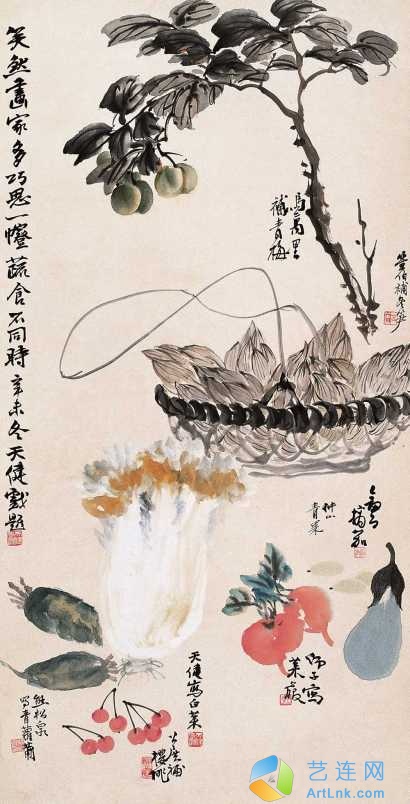 笑然畫家多巧思一蔬食不同時辛未冬天健戲題
馬萬里
補青梅
伯補冬笋
摘茄
仲山
青菓
師子寫
萊菔
天健寫白菜
公展補
櫻桃
熊松泉
寫青蘿蔔
艺连网
ArtLnk.com